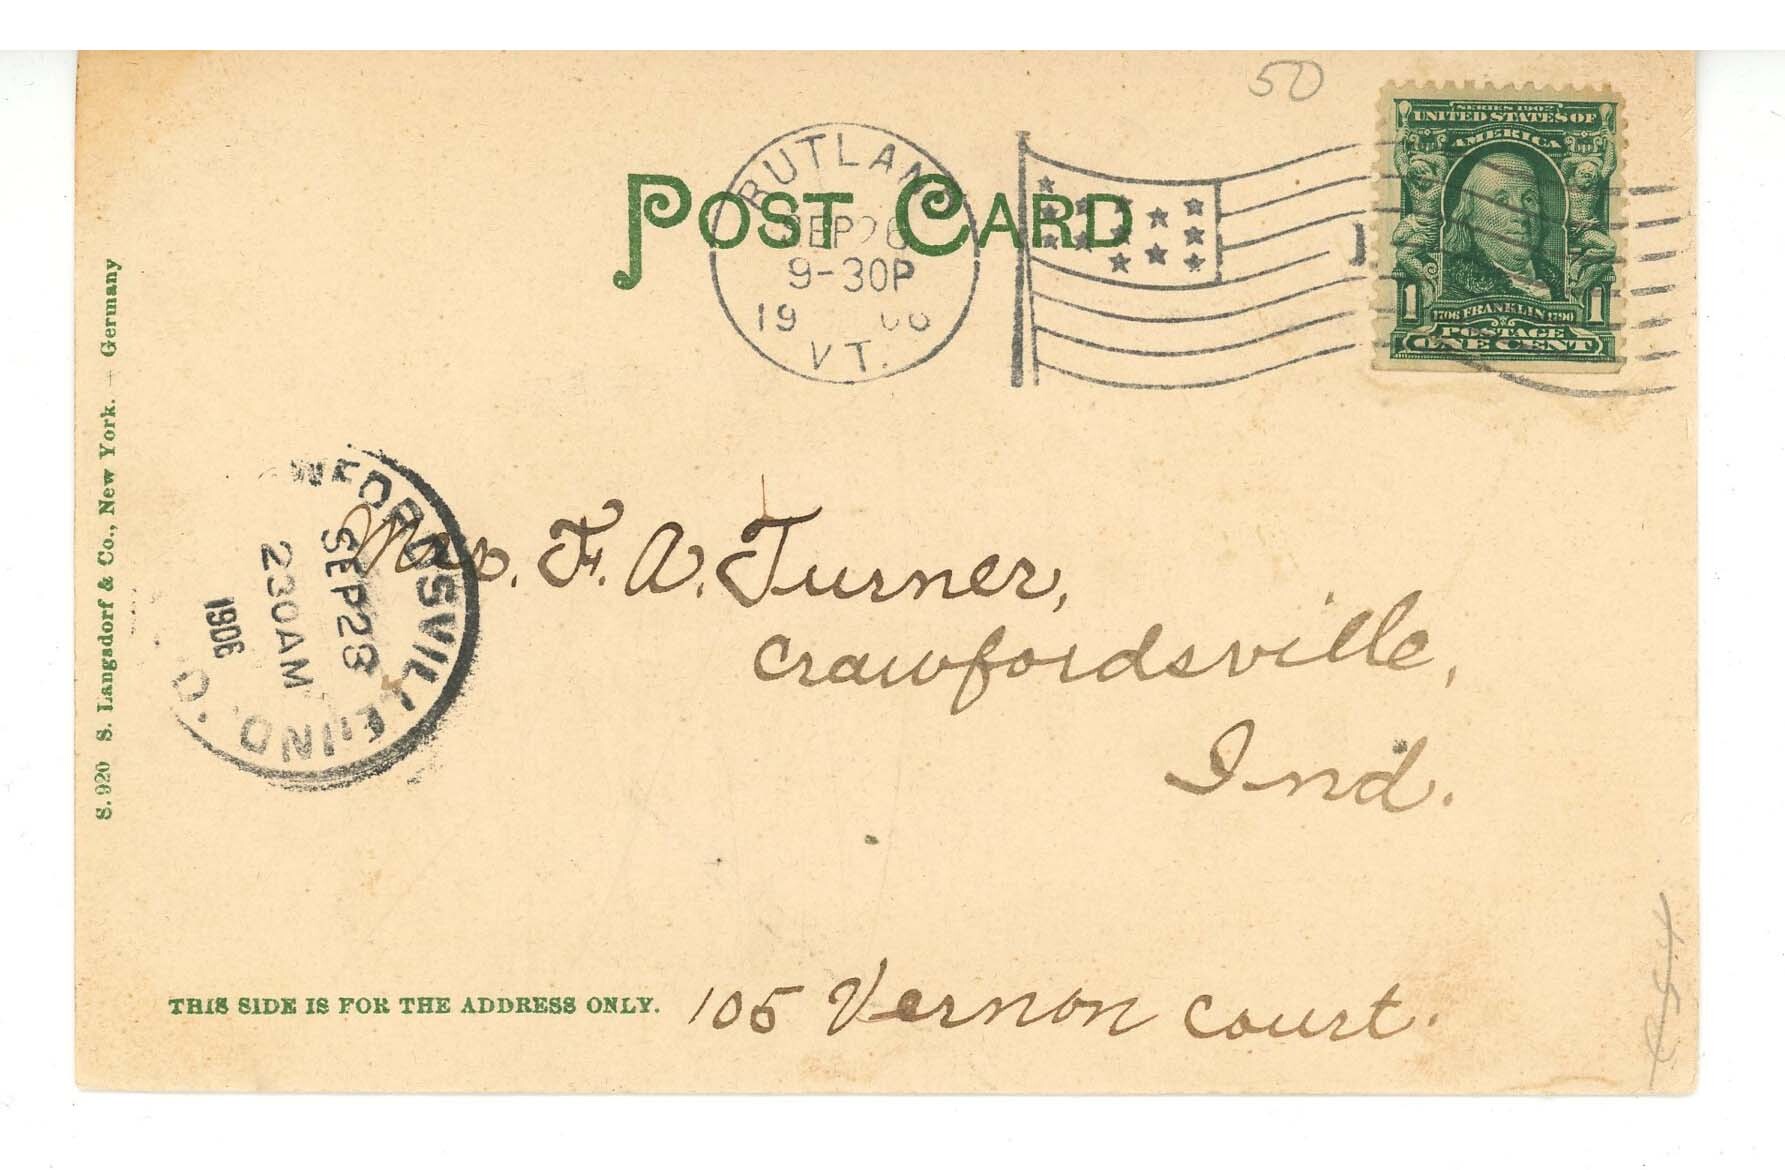 50
SERIES 1902
UNITED STATES OF
AMERICA
1706 FRANKLIN 1790
1 1
POSTAGE
ONE CENT
RUTLAND
SEP 26
9-30P
19 06
VT.
1
POST CARD
Mrs. F. A. Turner,
Crawfordsville,
Ind.
105 Vernon Court.
WFORDSVILLE IND.
SEP 28
230AM
1906
THIS SIDE IS FOR THE ADDRESS ONLY.
S. 920 S. Langsdorf & Co., New York. — Germany